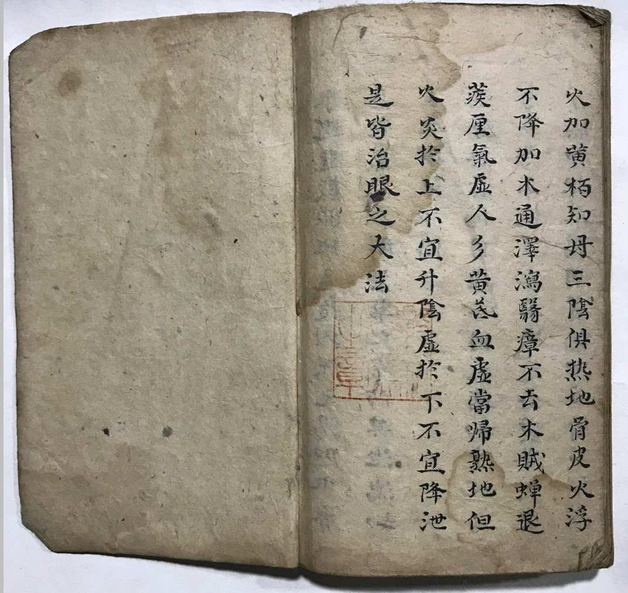 火加黄柏知母三陰俱热地骨皮火浮
不降加木通澤瀉翳瘴不去木賊蟬退
蒺厘氣虛人參黄芪血虛當帰熟地但
火炎於上不宜升陰虛於下不宜降泄
是皆治眼之大法